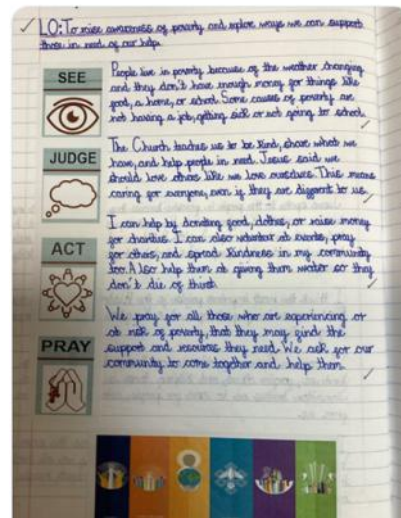 LO: To raise awareness of poverty and explore ways we can support
those in need of our help.
SEE
People live in poverty because of the weather changing
and they don't have enough money for things like
food, a home, or school. Some causes of poverty are
not having a job, getting sick or not going to school.
JUDGE
The Church teaches us to be kind, share what we
have, and help people in need. Jesus said we
should love others like we love ourselves. This means
caring for everyone, even if they are different to us.
ACT
I can help by donating food, clothes, or raise money
for charities. I can also volunteer at events, pray
for others, and spread kindness in my community
too. Also help them at giving them water so they
don't die of thirst.
PRAY
We pray for all those who are experiencing or
at risk of poverty, that they may find the
support and resources they need. We ask for our
community to come together and help them.